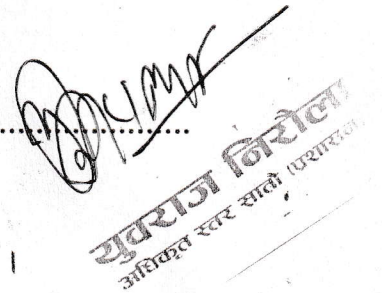 युवराज निरौला
अधिकृत स्तर सातौ (प्रशासन)